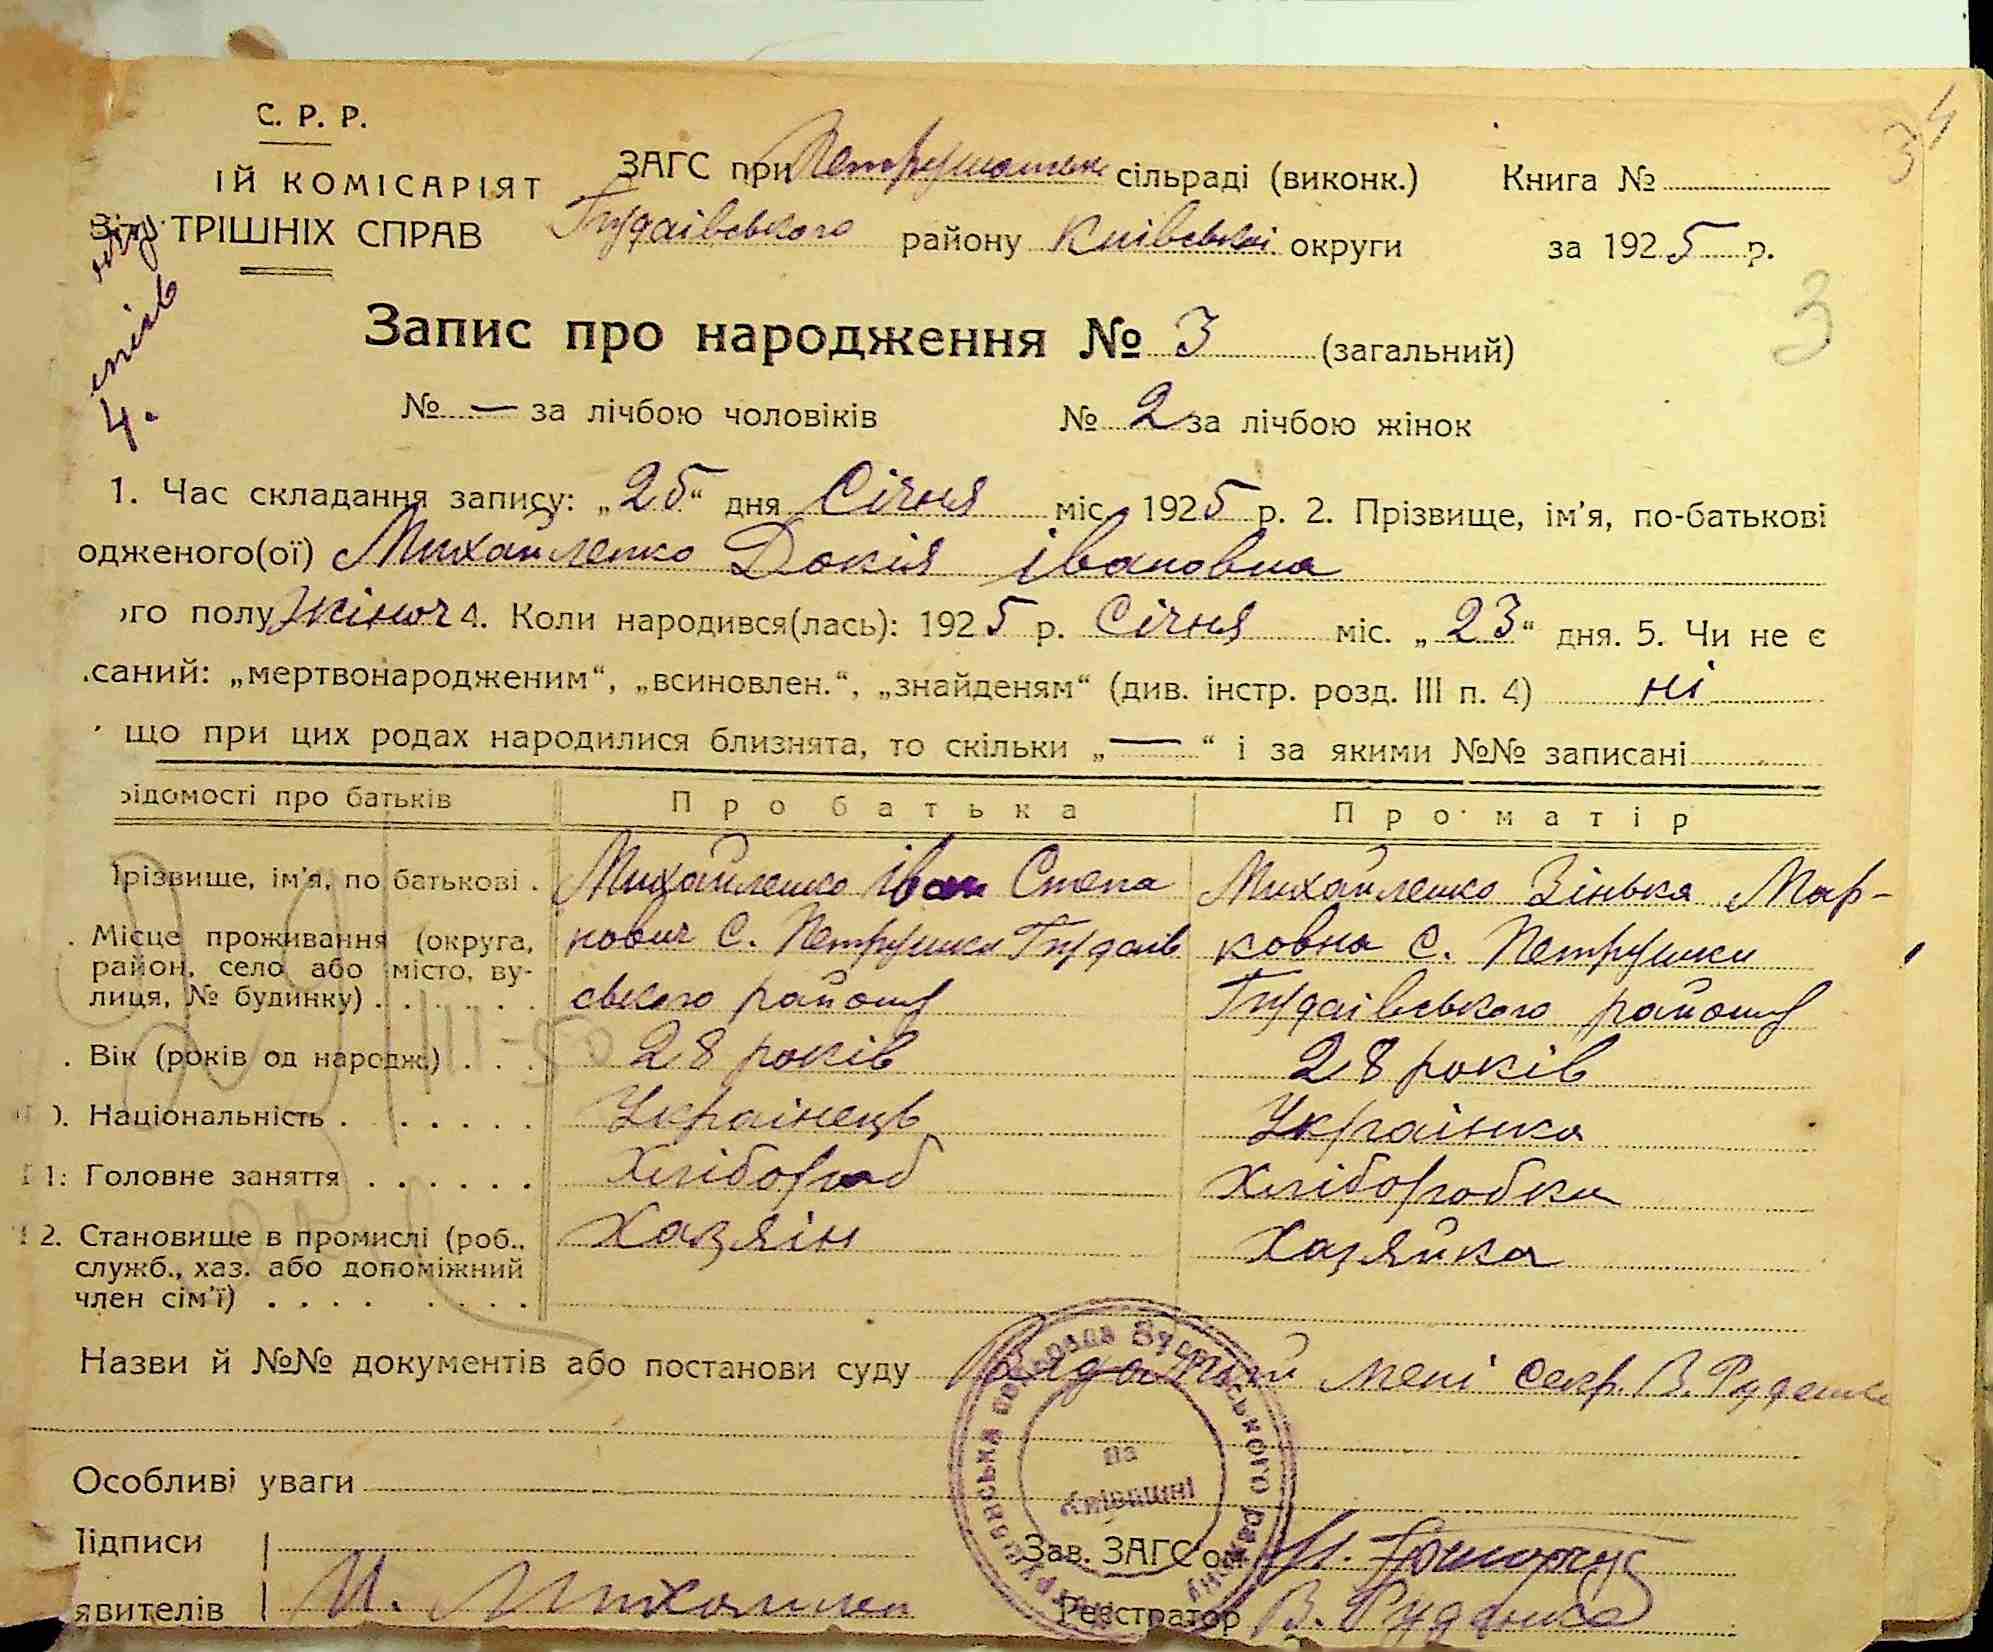 С. Р. Р.
ІЙ КОМІСАРІЯТ
ТРІШНІХ СПРАВ
ЗАГС при сільраді (виконк.) Книга №
району Київської округи за 1925 р.
3
4.
Запис про народження № 3 (загальний)
№ — за лічбою чоловіків № 2 за лічбою жінок
1. Час складання запису: „25“ дня Січня міс. 1925 р. 2. Прізвище, ім'я, по-батькові
одженого(ої) Михайленко Докія Івановна
ого полу жіноч 4. Коли народився(лась): 1925 р. Січня міс. „23“ дня. 5. Чи не є
саний: „мертвонародженим“, „всиновлен.“, „знайденям“ (див. інстр. розд. III п. 4) ні
що при цих родах народилися близнята, то скільки „—“ і за якими №№ записані
ідомості про батьків Про батька Про матір
Ірізвище, ім'я, по батькові . Михайленко Іван Степа Михайленко Зінька Мар-
. Місце проживання (округа, нович С. Петрушки Гудаїв ковна С. Петрушки
район, село або місто, ву-
лиця, № будинку) . . . . . ського району Гудаївського району
. Вік (років од народж.) . . . 28 років 28 років
). Національність . . . . . . Українець Українка
1: Головне заняття . . . . . . Хлібороб Хліборобка
2. Становище в промислі (роб., Хазяїн Хазяйка
служб., хаз. або допоміжний
член сім'ї) . . . . . . . .
Назви й №№ документів або постанови суду мені секр. В. Руденко
Особливі уваги
на
Київщині
Підписи Зав. ЗАГС'ом
явителів Реєстратор В. Руденко